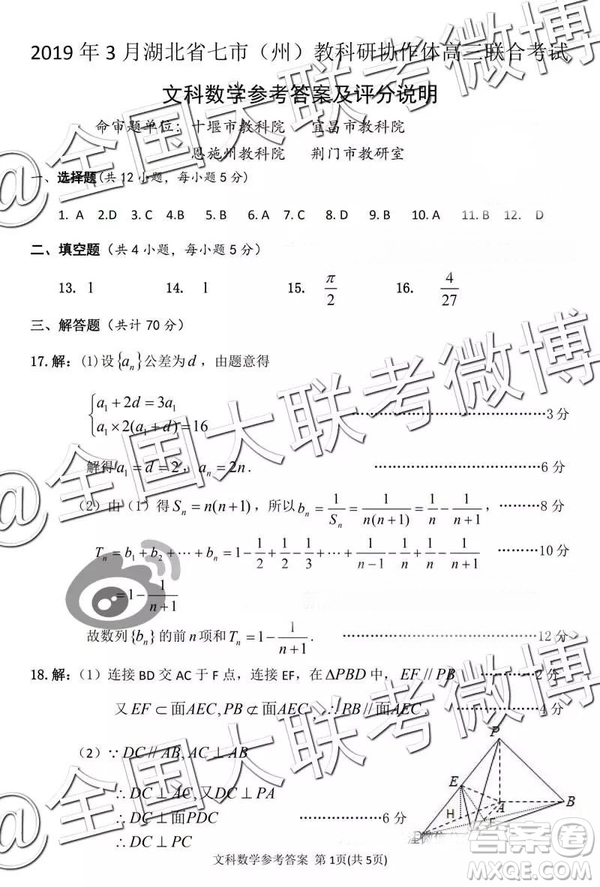 2019 年 3 月湖北省七市（州）教科研协作体高三联合考试
文科数学参考答案及评分说明
命审题单位：十堰市教科院 宜昌市教科院
恩施州教科院 荆门市教研室
一、选择题(共 12 小题，每小题 5 分)
1. A 2.D 3. C 4.B 5.C 6. B 7.C 8. B 9. D 10. A 11. B 12. D
二、填空题（共 4 小题，每小题 5 分）
13. 1 14. 1 15. π/2 16. 4/27
三、解答题（共计 70 分）
17.解：(1)设{aₙ}公差为d，由题意得
{a₁+2d=3a₁
a₁×2(a₁+d)=16 ………………3 分
解得a₁=d=2，aₙ=2n. ………………6 分
（2）由（1）得Sₙ=n(n+1)，所以bₙ=1/Sₙ=1/n(n+1)=1/n-1/(n+1)，………8 分
Tₙ=b₁+b₂+⋯+bₙ=1-1/2+1/2-1/3+⋯+1/n-1/(n+1) ………10 分
=1-1/(n+1)
故数列{bₙ}的前 n 项和Tₙ=1-1/(n+1). ………………12 分
18.解：（1）连接 BD 交 AC 于 F 点，连接 EF，在ΔPBD中，EF∥PB ………2 分
又EF⊂面AEC,PB⊄面AEC,∴PB∥面AEC ………4 分
（2）∵DC∥AB,AC⊥AB
∴DC⊥AC,又DC⊥PA
∴DC⊥面PDC ………6 分
∴DC⊥PC
P
E
H
A
B
F
文科数学参考答案 第 1页(共 5页)
@全国大联考微博
@全国大联考微博
@全国大联考微博
答案圈
MXQE.COM